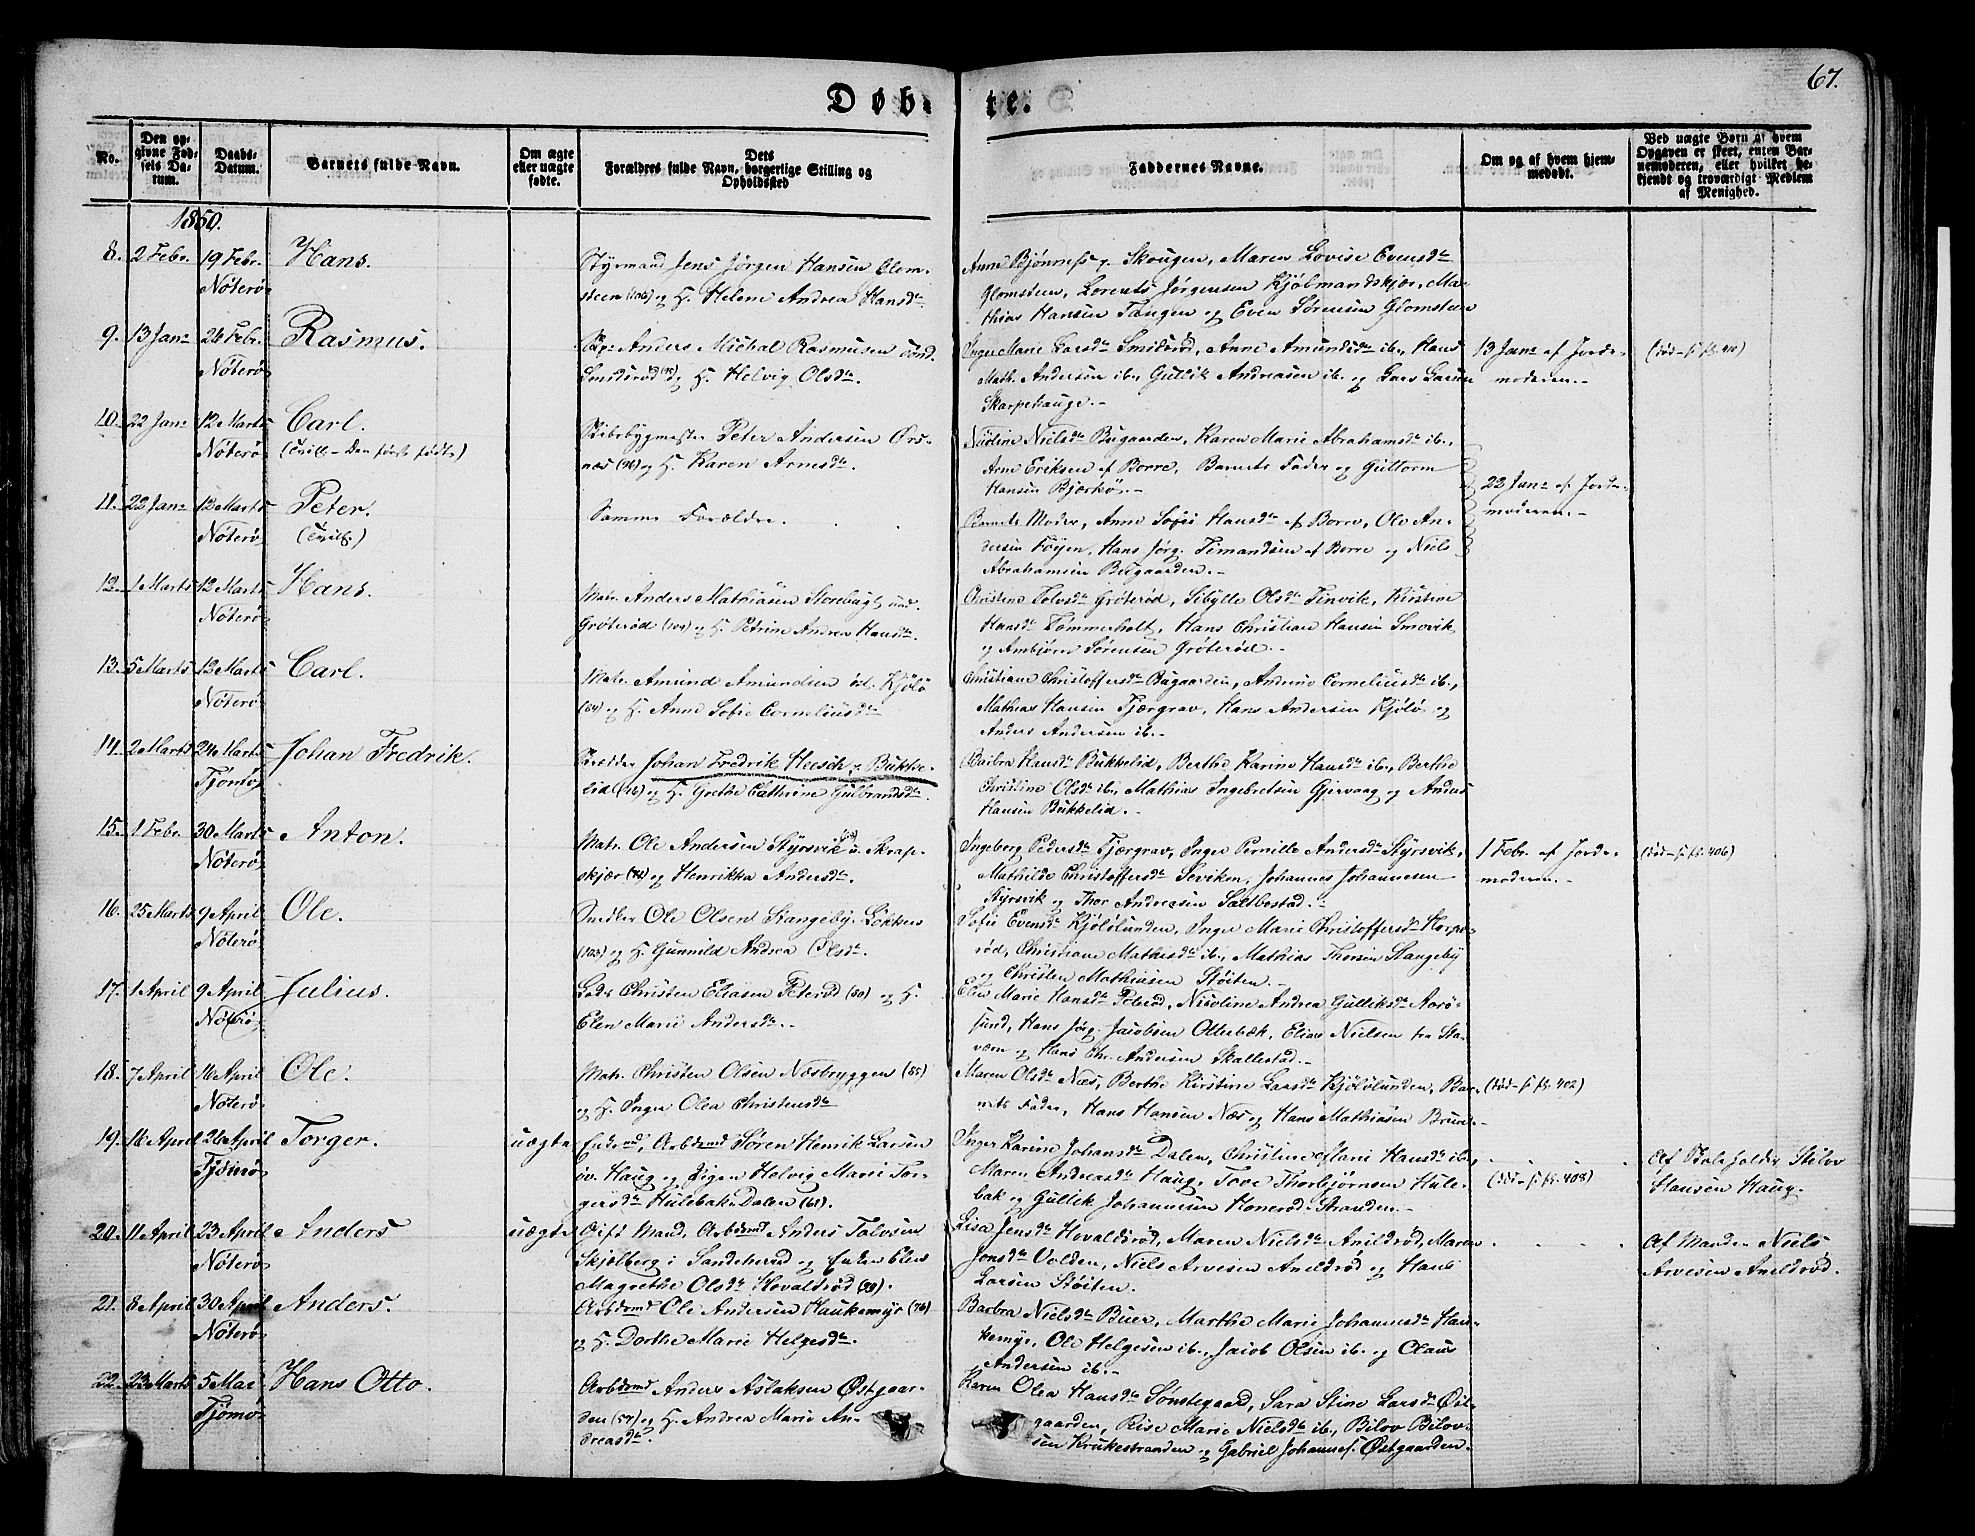 67.
Døbte.
No.
Den opgivne Fødsels Datum.
Daabs-Datum.
Barnets fulde Navn.
Om ægte eller uægte fødte.
Forældres fulde Navn, borgerlige Stilling og Dets Opholdsted
Faddernes Navne.
Om og af hvem hjemmedøbt.
Ved uægte Børn af hvem Opgaven er skeet, enten Barnemoderen, eller hvilket bekjendt og troværdigt Medlem af Menighed.
1850.
8. 2 Febr. 19 Febr. Nøterø Hans.
Styrmand Jens Jørgen Hansen Glom-
steen (106) og H. Helene Andrea Hansdtr
Anne Bjønness p. Skougen, Maren Lovise Evensdtr
Glomsteen, Lorents Jørgensen Kjøbmandskjær, Ma-
thias Hansen Tangen og Even Sørensen Glomsteen
9. 13 Janr 24 Febr. Nøterø Rasmus.
Anders Michal Rasmusen
Smidsrød og H. Helvig Olsdtr.
Inger Marie Larsdtr Smidsrød, Anne Amundsdtr ib., Hans
Math. Andersen ib., Gullik Andreasen ib. og Lars Larsen
Skarpehauge.-
13 Janr af Jorde-
moderen.-
10. 22 Janr 12 Marts Nøterø Carl.
(Tvill.- Den først fødte)
Skibsbygmester Peter Andersen Ørs-
næs (96) og H. Karen Arnesdtr.
Nielsdtr Bugaarden, Karen Marie Abrahamsdtr ib.,
Arn Eriksen af Borre, Barnets Fader og Guttorm
Hansen Bjerkø.-
22 Janr af Jorde-
moderen.-
11. 22 Janr 12 Marts Nøterø Peter.
(Tvill.)
Samme Forældre.
Barnets Moder, Anne Sofie Hansdtr af Borre, Ole An-
dersen Føyen, Hans Jørg. Timandsen af Borre og Niels
Abrahamsen Bugaarden.-
12. 1 Marts 12 Marts Nøterø Hans.
Matr. Anders Mathiasen Storebugt und.
Grøterød (104) og H. Petrine Andrea Hansdtr
Christine Tolvsdtr Grøterød, Sibylle Olsdtr Tinvik, Kirstine
Hansdtr Tømmerholt, Hans Christian Hansen Smovik
og Ambjørn Sørensen Grøterød.-
13. 5 Marts 12 Marts Nøterø Carl.
Matr. Amund Amundsen øst. Kjølø
(84) og H. Anne Sofie Corneliusdtr
Christiane Christoffersdtr Bugaarden, Andrine Corneliusdtr ib.,
Mathias Hansen Tjærgrav, Hans Andersen Kjølø og
Anders Andersen ib.-
14. 2 Marts 24 Marts Tjømø Johan Fredrik.
Skredder Johan Fredrik Heesch p. Bukke-
lid (46) og H. Grethe Cathrine Gulbrandsdtr.
Barbra Hansdtr Bukkelid, Berthe Karine Hansdtr ib., Berthe
Christine Olsdtr ib., Mathias Ingebretsen Gjervaag og Anders
Hansen Bukkelid.-
15. 1 Febr. 30 Marts Nøterø Anton.
Matr. Ole Andersen Styrsvik u. Skrap-
skjær (74) og Henrikka Andersdtr.
Ingeborg Pedersdtr Tjærgrav, Inger Pernille Andersdtr Styrsvik,
Mathilde Christoffersdtr Seviken, Johannes Johannesen
Styrsvik og Thor Andreasen Saltbostad.-
1 Febr. af Jorde-
moderen.-
(død- s. fl. 406)
16. 25 Marts 9 April Nøterø Ole.
Snedker Ole Olsen Stangeby-Løkken
(103) og H. Gunnild Andrea Olsdtr.
Sofie Evensdtr Kjølølunden, Inger Marie Christoffersdtr Horpe-
rød, Christiane Mathisdtr ib., Mathias Thorsen Stangeby
og Christen Mathiasen Støiten.-
17. 1 April 9 April Nøterø Julius.
Lods Christen Eliasen Peterød (80) og H.
Elen Marie Andersdtr.-
Elen Marie Hansdtr Peterød, Nicoline Andrea Gulliksdtr Aarø-
sund, Hans Jørg. Jacobsen Otterbæk, Elias Nielsen fra Sta-
værn og Hans Chr. Andersen Skallestad.-
18. 7 April 16 April Nøterø Ole.
Matr. Christen Olsen Næsbryggen (85)
og H. Inger Olea Christensdtr
Maren Olsdtr Næs, Berthe Kirstine Larsdtr Kjølølunden, Bar-
nets Fader, Hans Hansen Næs og Hans Mathiasen Bruun.-
(død- s. fl. 402)
19. 16 April 26 April Tjømø Torger. uægte
Enkemd, Arbdsmd Søren Henrik Larsen
øv. Haug og Pigen Helvig Marie Tor-
gersdtr Hulebak-Dalen (61).
Inger Karine Johansdtr Dalen, Christine Marie Hansdtr ib.,
Maren Andreasdtr Haug, Tove Thorbjørnsen Hule-
bak og Gullik Johannesen Honerød-Stranden.-
(død- s. fl. 408)
Af Pladsfolder Stilov
Hansen Haug.
20. 11 April 23 April Nøterø Anders uægte
Gift Mand, Arbdsmd Anders Tolvsen
Skjølberg i Sandeherred og Enken Elen
Magrethe Olsdtr Hovaldsrød
Lisa Jensdtr Hovaldsrød, Maren Nielsdtr Anildrød, Maren
Jonsdtr Volden, Niels Arvesen Anildrød og Hans
Larsen Støiten.
Af Manden Niels
Arvesen Anildrød.
21. 8 April 30 April Nøterø Anders.
Arbdsmd Ole Andersen Haukemyr (76)
og H. Dorthe Marie Helgesdtr.
Barbra Nielsdtr Buer, Marthe Marie Johannesdtr Hau-
kemyr, Ole Helgesen ib., Jacob Olsen ib. og Claus
Andersen ib.-
22. 23 Marts 5 Mai Tjømø Hans Otto.
Arbdsmd Anders Aslaksen Østgaar-
den (57) og H. Andrea Marie An-
dreasdtr.
Karen Olea Hansdtr Sønstegaard, Sara Stine Larsdtr Øst-
gaarden, Rise Marie Nielsdtr ib., Bilov Bilov-
sen Krukestranden og Gabriel Johannes. Østgaarden.